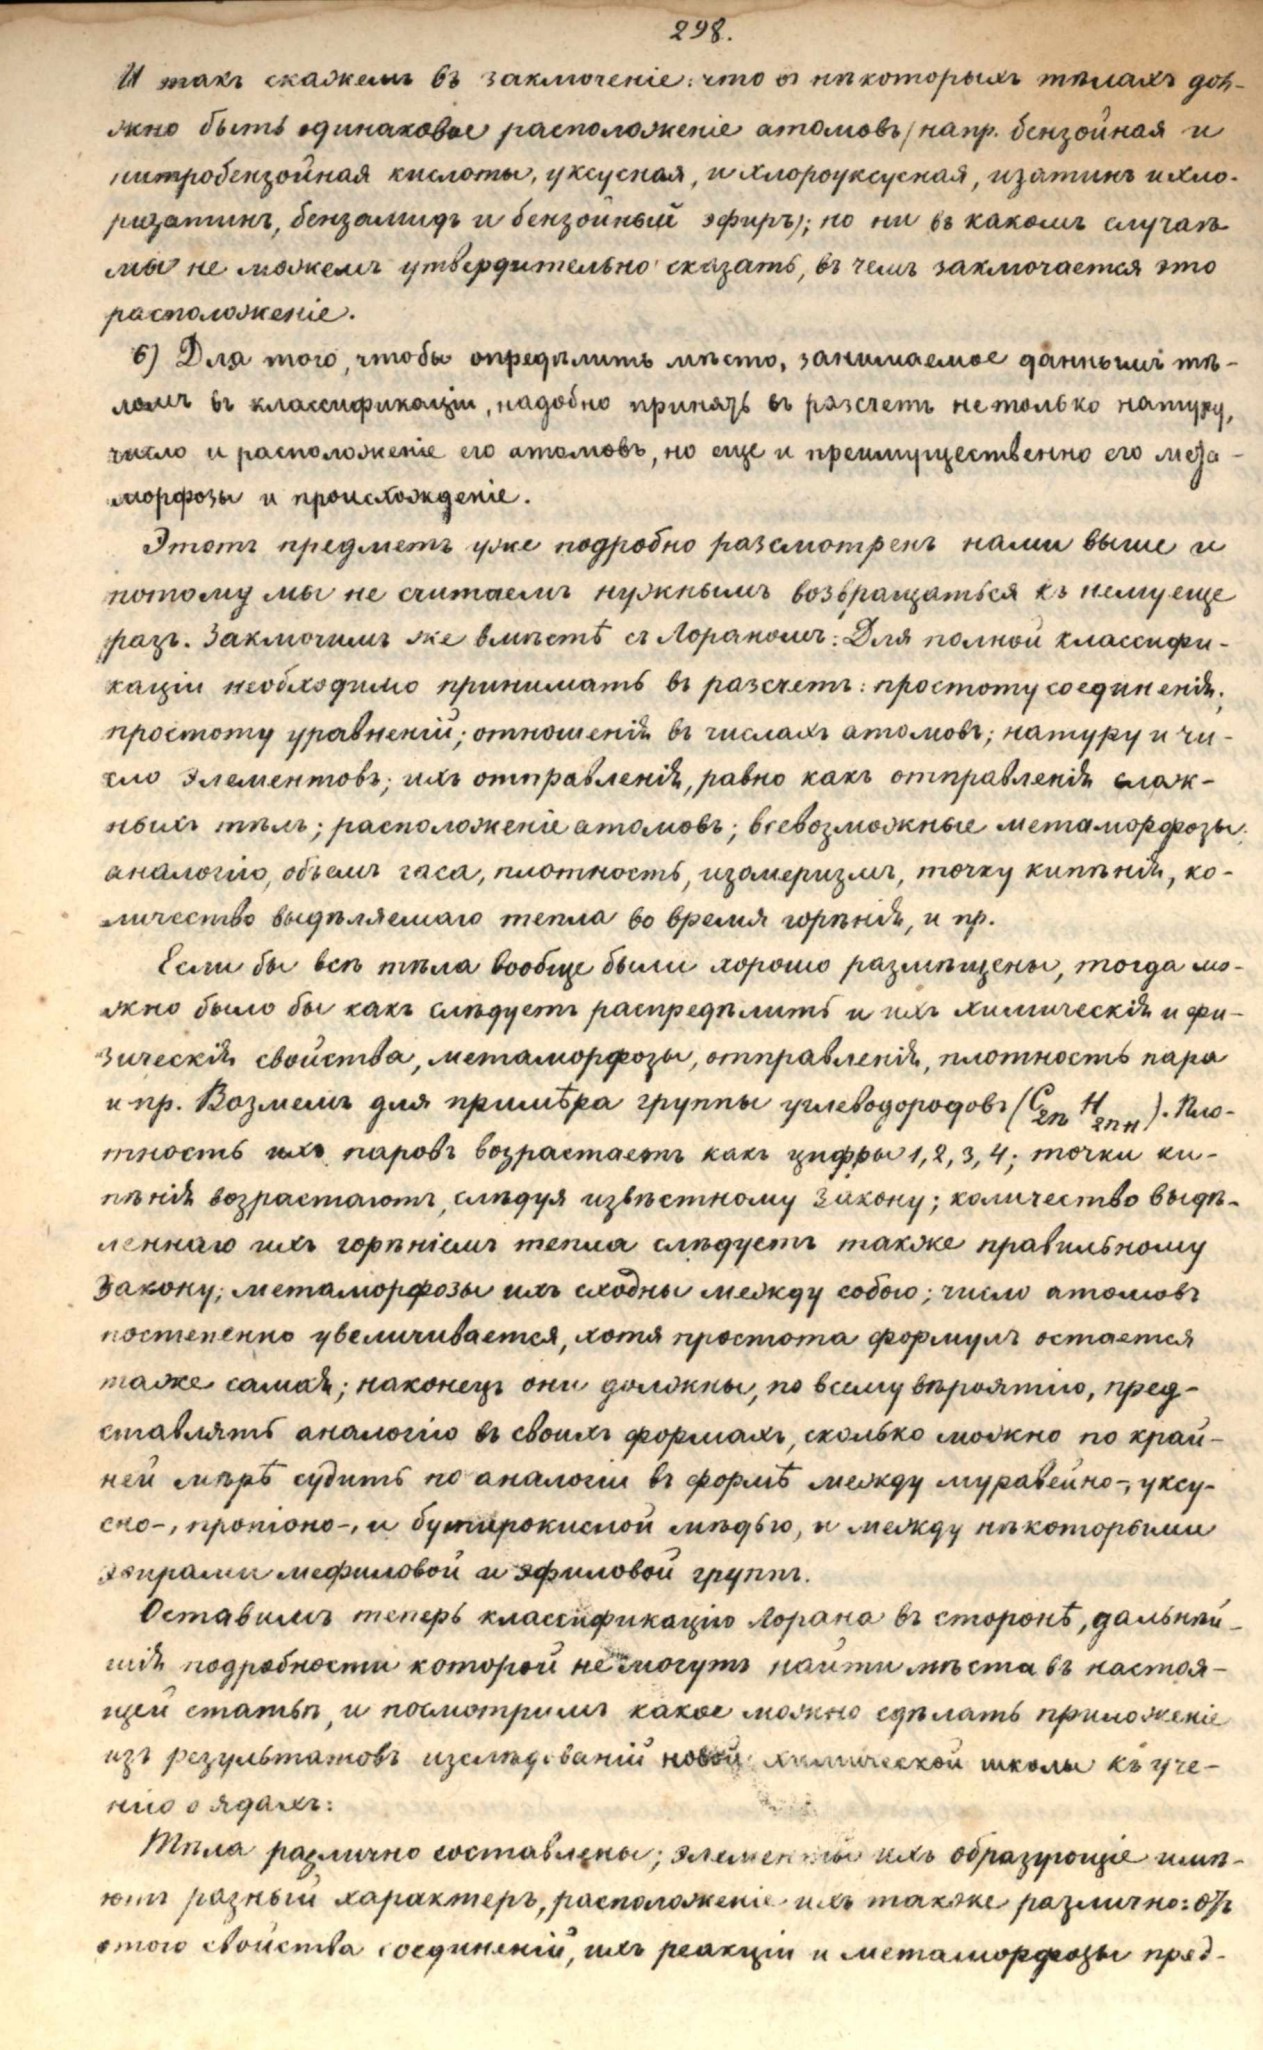 298.
И такъ скажемъ въ заключеніе: что въ нѣкоторыхъ тѣлахъ дол-
жно быть одинаковое расположеніе атомовъ (напр. бензойная и
нитробензойная кислоты, уксусная, и хлороуксусная, изатинъ и хло-
ризатинъ, бензамидъ и бензойный эфиръ); но ни въ какомъ случаѣ
мы не можемъ утвердительно сказать, въ чемъ заключается это
расположеніе.
6) Для того, чтобы опредѣлить мѣсто, занимаемое даннымъ тѣ-
ломъ въ классификаціи, надобно принять въ разсчетъ не только натуру,
число и расположеніе его атомовъ, но еще и преимущественно его мета-
морфозы и происхожденіе.
Этотъ предметъ уже подробно разсмотренъ нами выше и
потому мы не считаемъ нужнымъ возвращаться къ нему еще
разъ. Заключимъ же вмѣстѣ съ Лораномъ: Для полной классифи-
каціи необходимо принимать въ разсчетъ: простоту соединенія;
простоту уравненій; отношенія въ числахъ атомовъ; натуру и чи-
сло элементовъ; ихъ отправленія, равно какъ отправленія слож-
ныхъ тѣлъ; расположеніе атомовъ; всевозможные метаморфозы;
аналогію, объемъ гаса, плотность, изомеризмъ, точку кипѣнія, ко-
личество выдѣляемаго тепла во время горѣнія, и пр.
Если бы всѣ тѣла вообще были хорошо размѣщены, тогда мо-
жно было бы какъ слѣдуетъ распредѣлить и ихъ химическія и фи-
зическія свойства, метаморфозы, отправленія, плотность пара
и пр. Возмемъ для примѣра группы углеводородовъ (C2n H2n+1). Пло-
тность ихъ паровъ возрастаетъ какъ цифры 1, 2, 3, 4; точки ки-
пѣнія возрастаютъ, слѣдуя извѣстному закону; количество выдѣ-
леннаго ихъ горѣніемъ тепла слѣдуетъ также правильному
закону; метаморфозы ихъ сходны между собою; число атомовъ
постепенно увеличивается, хотя простота формулъ остается
таже самая; наконецъ они должны, по всему вѣроятію, пред-
ставлять аналогію въ своихъ формахъ, сколько можно по край-
ней мѣрѣ судить по аналогіи въ формѣ между муравейно-, уксу-
сно-, пропіоно-, и бутирокислой мѣдью, и между нѣкоторыми
эѳирами меѳиловой и эѳиловой группъ.
Оставимъ теперь классификацію Лорана въ сторонѣ, дальнѣй-
шія подробности которой не могутъ найти мѣста въ настоя-
щей статьѣ, и посмотримъ какое можно сдѣлать приложеніе
изъ результатовъ изслѣдованій новой химической школы къ уче-
нію о ядахъ:
Тѣла различно составлены; элементы ихъ образующіе имѣ-
ютъ разный характеръ, расположеніе ихъ также различно: отъ
этого свойства соединеній, ихъ реакціи и метаморфозы пред-